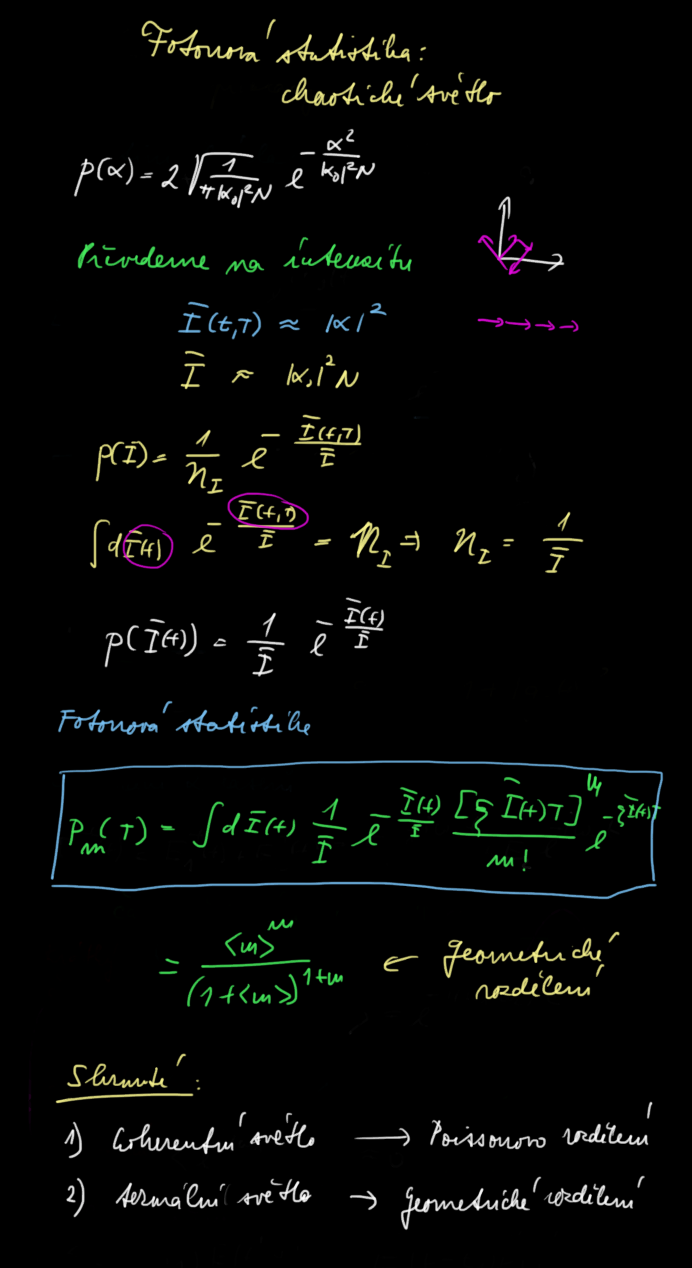 Fotonová statistika:
chaotické světlo
p(α) = 2 √(1/(π|α₀|²N)) e^(-α²/(|α₀|²N))
Převedeme na intenzitu
Ī(t,T) ≈ |α|²
Ī ≈ |α₀|²N
p(I) = 1/n_I e^(-Ī(t,T)/Ī)
∫dĪ(t) e^(-Ī(t,T)/Ī) = n_I ⇒ n_I = 1/Ī
p(Ī(t)) = 1/Ī e^(-Ī(t)/Ī)
Fotonová statistika
P_m(T) = ∫dĪ(t) 1/Ī e^(-Ī(t)/Ī) [ξ Ī(t)T]^m/m! e^(-ξĪ(t)T)
= <m>^m/(1+<m>)^(1+m) ← geometrické
rozdělení
Shrnutí:
1) Coherentní světlo → Poissonovo rozdělení
2) termální světlo → geometrické rozdělení